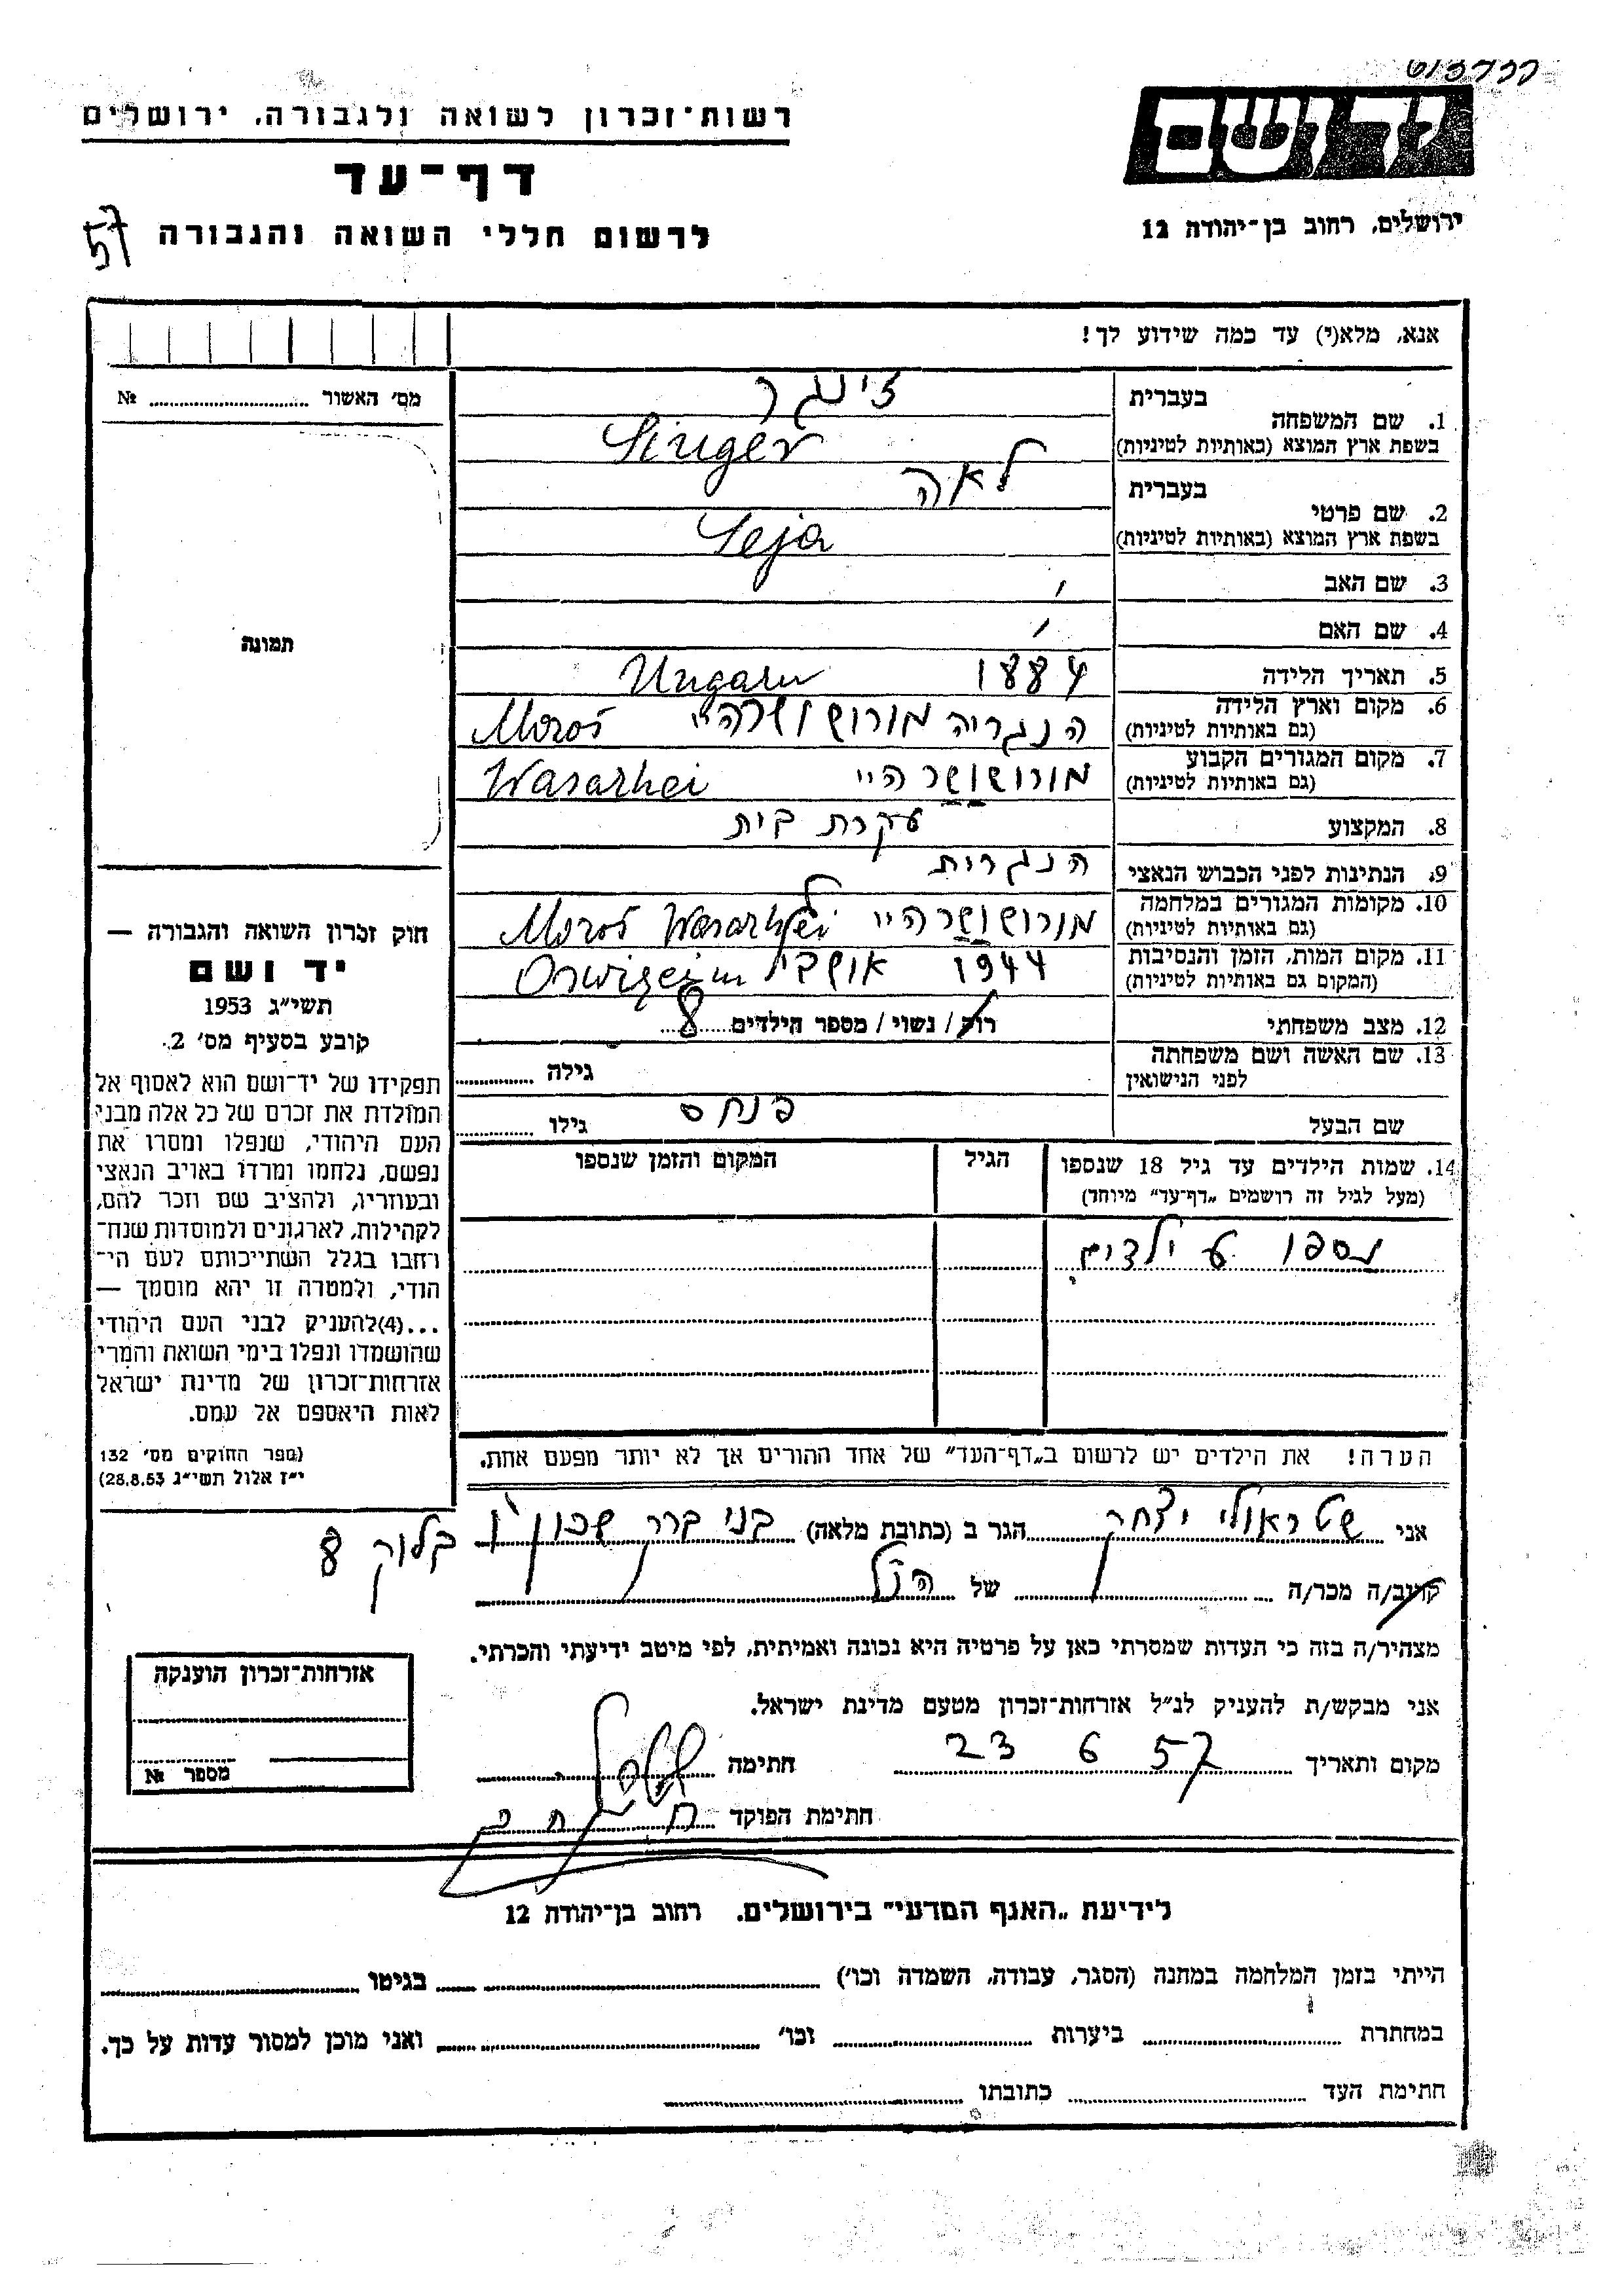 רשות־זכרון לשואה ולגבורה, ירושלים
יד ושם
דף־עד
ירושלים, רחוב בן־יהודה 12
לרשום חללי השואה והגבורה
57
אנא, מלא(י) עד כמה שידוע לך!
מס׳ האשור № 
בעברית
1. שם המשפחה
זינגר
בשפת ארץ המוצא (באותיות לטיניות)
Singer
בעברית
2. שם פרטי
לאה
בשפת ארץ המוצא (באותיות לטיניות)
Leja
3. שם האב
4. שם האם
תמונה
5. תאריך הלידה 1884 Ungarn
6. מקום וארץ הלידה
(גם באותיות לטיניות)
הנגריה מורוש ושרהיי Moroš
7. מקום המגורים הקבוע
(גם באותיות לטיניות)
מורושושרהיי Wasarhei
8. המקצוע עקרת בית
9. הנתינות לפני הכבוש הנאצי הנגרית
10. מקומות המגורים במלחמה
(גם באותיות לטיניות)
מורושושרהיי Moroš Wasarhei
11. מקום המות, הזמן והנסיבות
(המקום גם באותיות לטיניות)
1944
12. מצב משפחתי רוק/ נשוי/ מספר הילדים 8
13. שם האשה ושם משפחתה
לפני הנישואין
גילה
שם הבעל פנחס גילו
14. שמות הילדים עד גיל 18 שנספו
(מעל לגיל זה רושמים „דף־עד״ מיוחד)
הגיל
המקום והזמן שנספו
נספו 6 ילדים
הערה! את הילדים יש לרשום ב„דף־העד״ של אחד ההורים אך לא יותר מפעם אחת.
חוק זכרון השואה והגבורה —
יד ושם
תשי״ג 1953
קובע בסעיף מס׳ 2.
תפקידו של יד־ושם הוא לאסוף אל
המולדת את זכרם של כל אלה מבני
העם היהודי, שנפלו ומסרו את
נפשם, נלחמו ומרדו באויב הנאצי
ובעוזריו, ולהציב שם וזכר להם,
לקהילות, לארגונים ולמוסדות שנח־
רחבו בגלל השתייכותם לעם הי־
הודי, ולמטרה זו יהא מוסמך —
...(4)להעניק לבני העם היהודי
שהושמדו ונפלו בימי השואה והמרי
אזרחות־זכרון של מדינת ישראל
לאות היאספם אל עמם.
(ספר החוקים מס׳ 132
י״ז אלול תשי״ג 28.8.53)
אני יצחק הגר ב (כתובת מלאה) בני ברק שכון ו׳ בלוק 8
קרוב/ה מכר/ה של הנ״ל
מצהיר/ה בזה כי העדות שמסרתי כאן על פרטיה היא נכונה ואמיתית, לפי מיטב ידיעתי והכרתי.
אני מבקש/ת להעניק לנ״ל אזרחות־זכרון מטעם מדינת ישראל.
אזרחות־זכרון הוענקה
מספר №
מקום ותאריך 23 6 57 חתימה
חתימת הפוקד
לידיעת „האגף המדעי״ בירושלים. רחוב בן־יהודה 12
הייתי בזמן המלחמה במחנה (הסגר, עבודה, השמדה וכו׳) בגיטו
במחתרת ביערות וכו׳ ואני מוכן למסור עדות על כך.
חתימת העד כתובתו